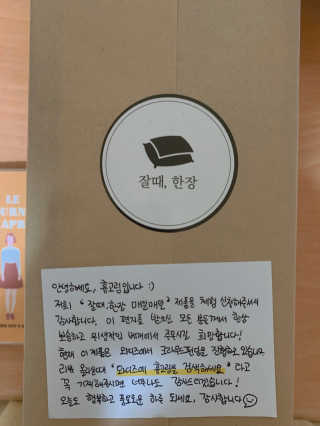 잘때, 한장
안녕하세요, 홍고림입니다 :)
저희 "잘때,한장 매일매면" 제품을 체험 신청해주셔서
감사합니다. 이 편지를 받으신 모든 분들께서 항상
뽀송하고 위생적인 베개에서 주무시길 희망합니다!
현재 이 제품은 와디즈에서 크라우드펀딩을 진행하고 있습니다
리뷰 올리실때 "와디즈에 홍고림을 검색하세요" 라고
꼭 기재해주시면 너무나도 감사드리겠습니다!
오늘도 행복하고 풍요로운 하루 되세요, 감사합니다
LE